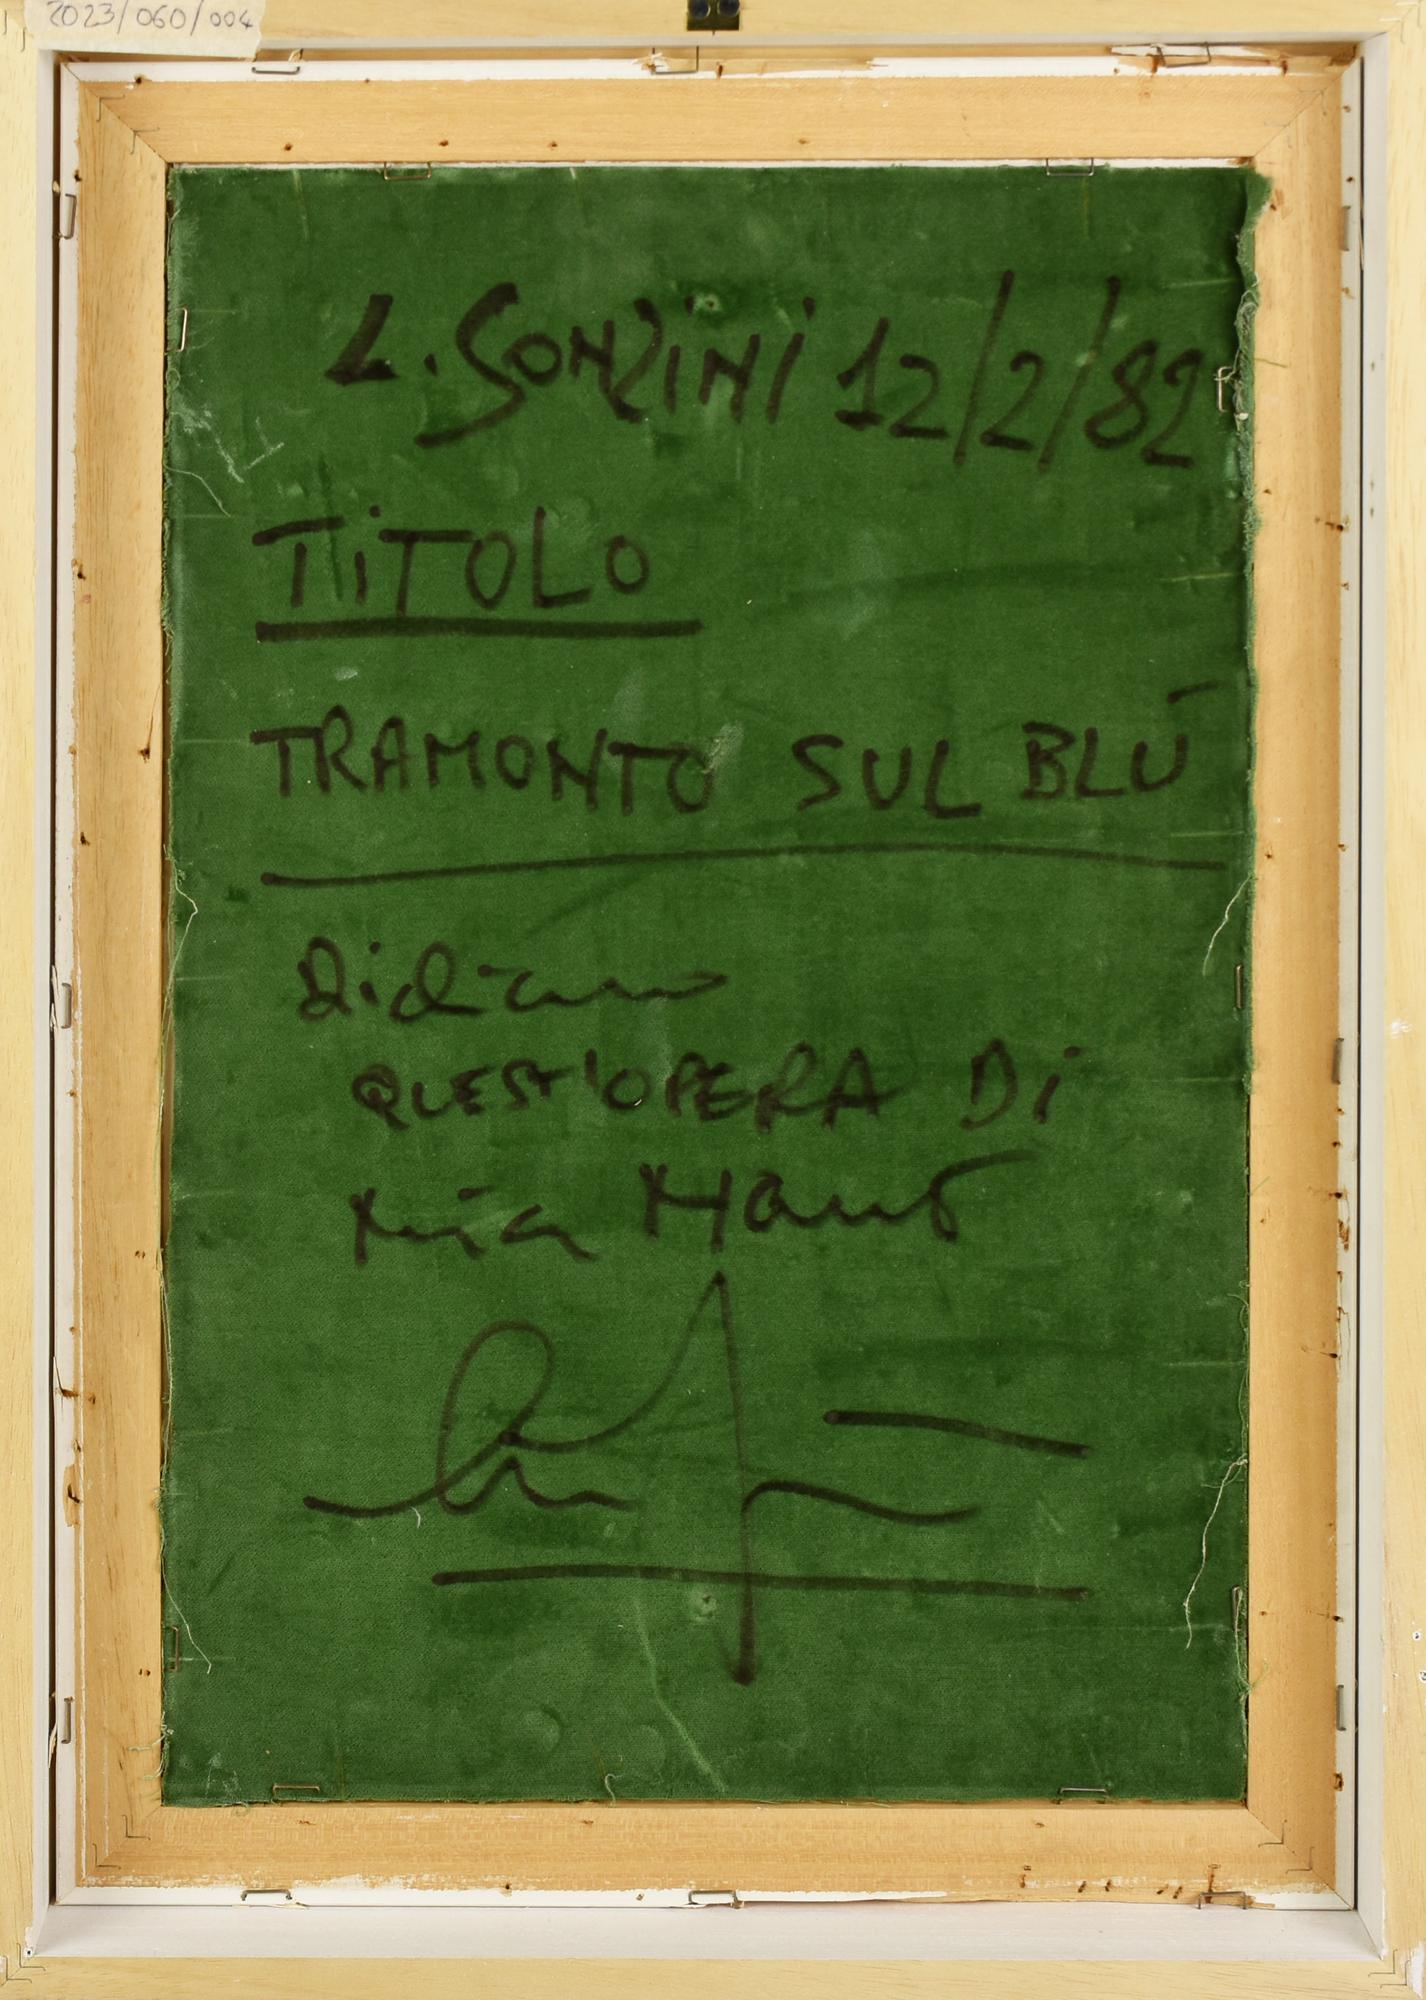 2023/060/004
L. SONZINI 12/2/82
TiTOLO
TRAMONTO SUL BLÚ
Dichiaro
QUEST'OPERA Di
mia Mano